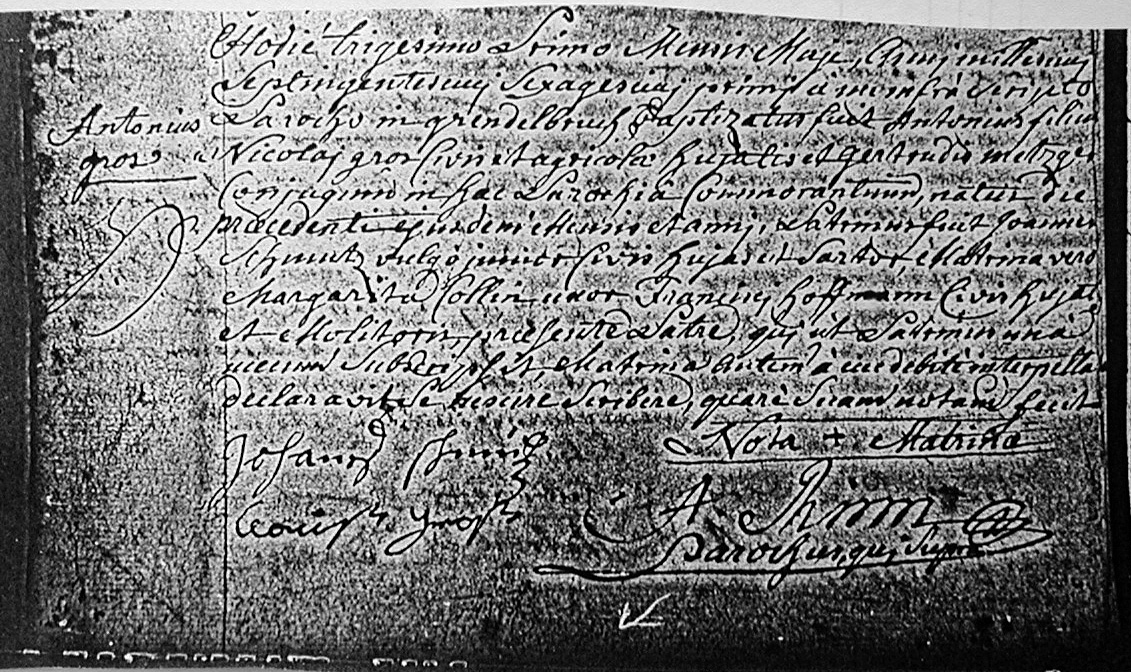 Hodie trigesimo Primo Mensis Maji, Anni millesimi
Septingentesimi Sexagesimi primi à me infrà Scripto
Antonius
gros
Parocho in grendelbruch Baptizatus fuit Antonius filius
Nicolaj gros Civis et agricolæ hujatis et gertrudis metzger
Conjugum in hac Parochiâ Commorantium, natus die
præcedenti ejusdem Mensis et anni, Patrinus fuit Joannes
vulgò junior Civis hujas et Sartor, Matrina verò
Margarita Collin uxor Francisci hoffmann Civis hujas
et Molitoris, præsente Patre, qui ut Patrinus unà
mecum Subscripsit, Matrina autem à me debitè interpellata
declaravit Se nescire Scribere, quare Suam notam fecit
Nota + Matrinæ
Parochus qui Supra